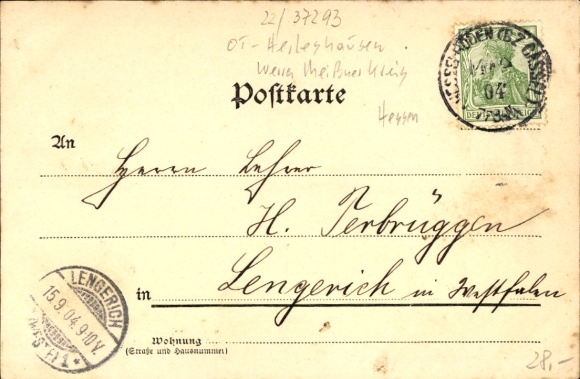 22/37293
OT-Herleshausen
Werra Meißner Kreis
Hessen
Postkarte
04
7-8 N
An
Herrn Lehrer
H. Terbrüggen
in Lengerich in Westfalen
LENGERICH
15.9.04.9-10V.
(WESTF) 1 *
Wohnung
(Straße und Hausnummer)
28,-